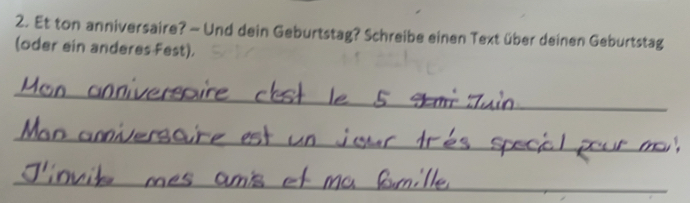 2. Et ton anniversaire? – Und dein Geburtstag? Schreibe einen Text über deinen Geburtstag
(oder ein anderes Fest).
Mon anniversaire c'est le 5 Juin
Mon anniversaire est un jour très special pour moi.
J'invite mes amis et ma famille